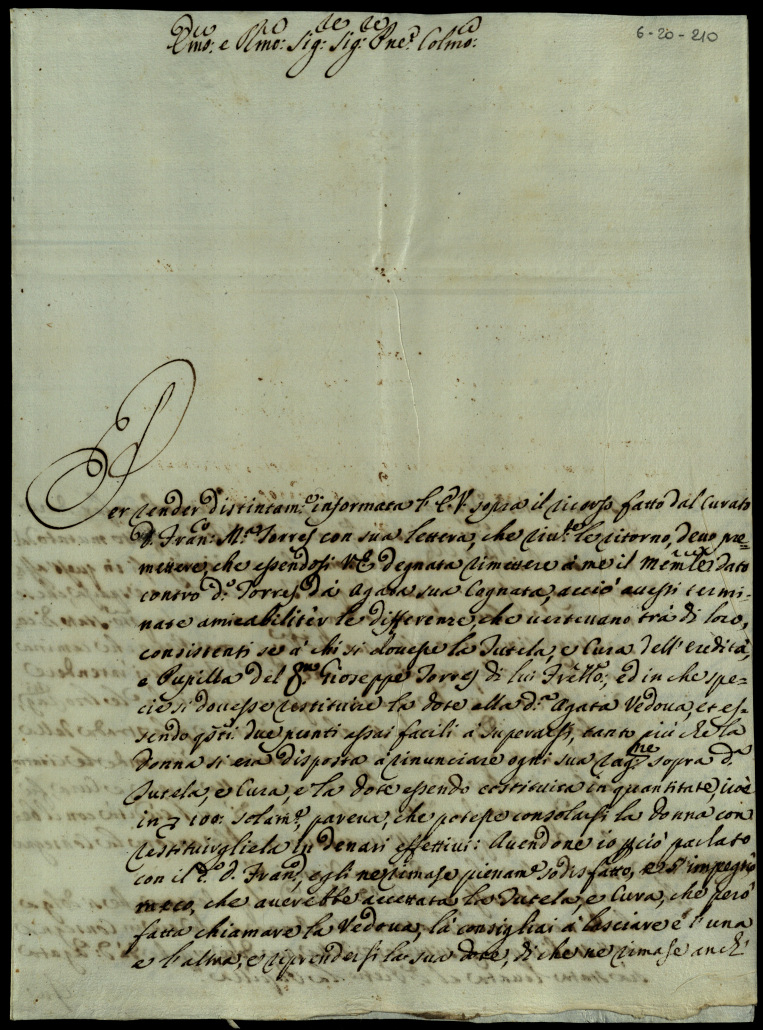 6-20-210
Emo: e Rmo: Sig: Sig: Pne: Colmo:
Per render distintam.e informata l'E.V. sopra il ricorso fatto dal Curato
D. Fran.o M.a Torres con sua lettera, che riv.te le ritorno, devo pre=
mettere, che essendosi V.E. degnata rimettere à me il mem.le dato
contro d.o Torres dà Agata sua Cognata, acciò avessi termi-
nate amicabilitèr le differenze, che vertevano trà di loro,
consistenti se à chi si dovesse la Tutela, e Cura dell'eredità,
e Pupilla del q.m Gioseppe Torres di lui Frello; ed in che spe=
cie si dovesse restituire la dote alla d.a Agata Vedova, et es-
sendo q.sti due punti assai facili à superarsi, tanto più che la
Donna si era disposta à rinunciare ogni sua rag.ne sopra d.a
Tutela, e Cura, e la dote essendo costituita in quantitate, cioè
in 100: solam.e, pareva, che potesse consolarsi la donna con
restituirgliela in denari effettivi: Avendone io perciò parlato
con il d.o D. Fran.o, egli ne rimase pienam.e sodisfatto, e s'impegnò
meco, che averebbe accettata la Tutela, e Cura, che però
fatta chiamare la Vedova, la consigliai à lasciare e l'una
e l'altra, e riprendersi la sua dote, di che ne rimase anch'